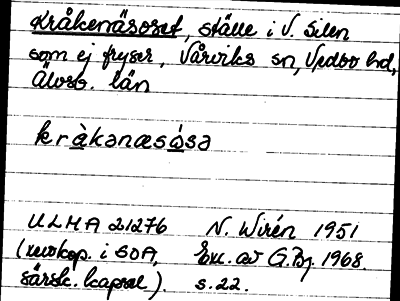 Kråkenäsoset, ställe i V. Silen
som ej fryser, Vårviks sn, Vedbo hd,
Älvsb. län
kràkənæsósa
ULMA 21276 N. Wirén 1951
(mekop. i SOA, Exc. av G.Bg. 1968.
särsk. kapsel). s.22.